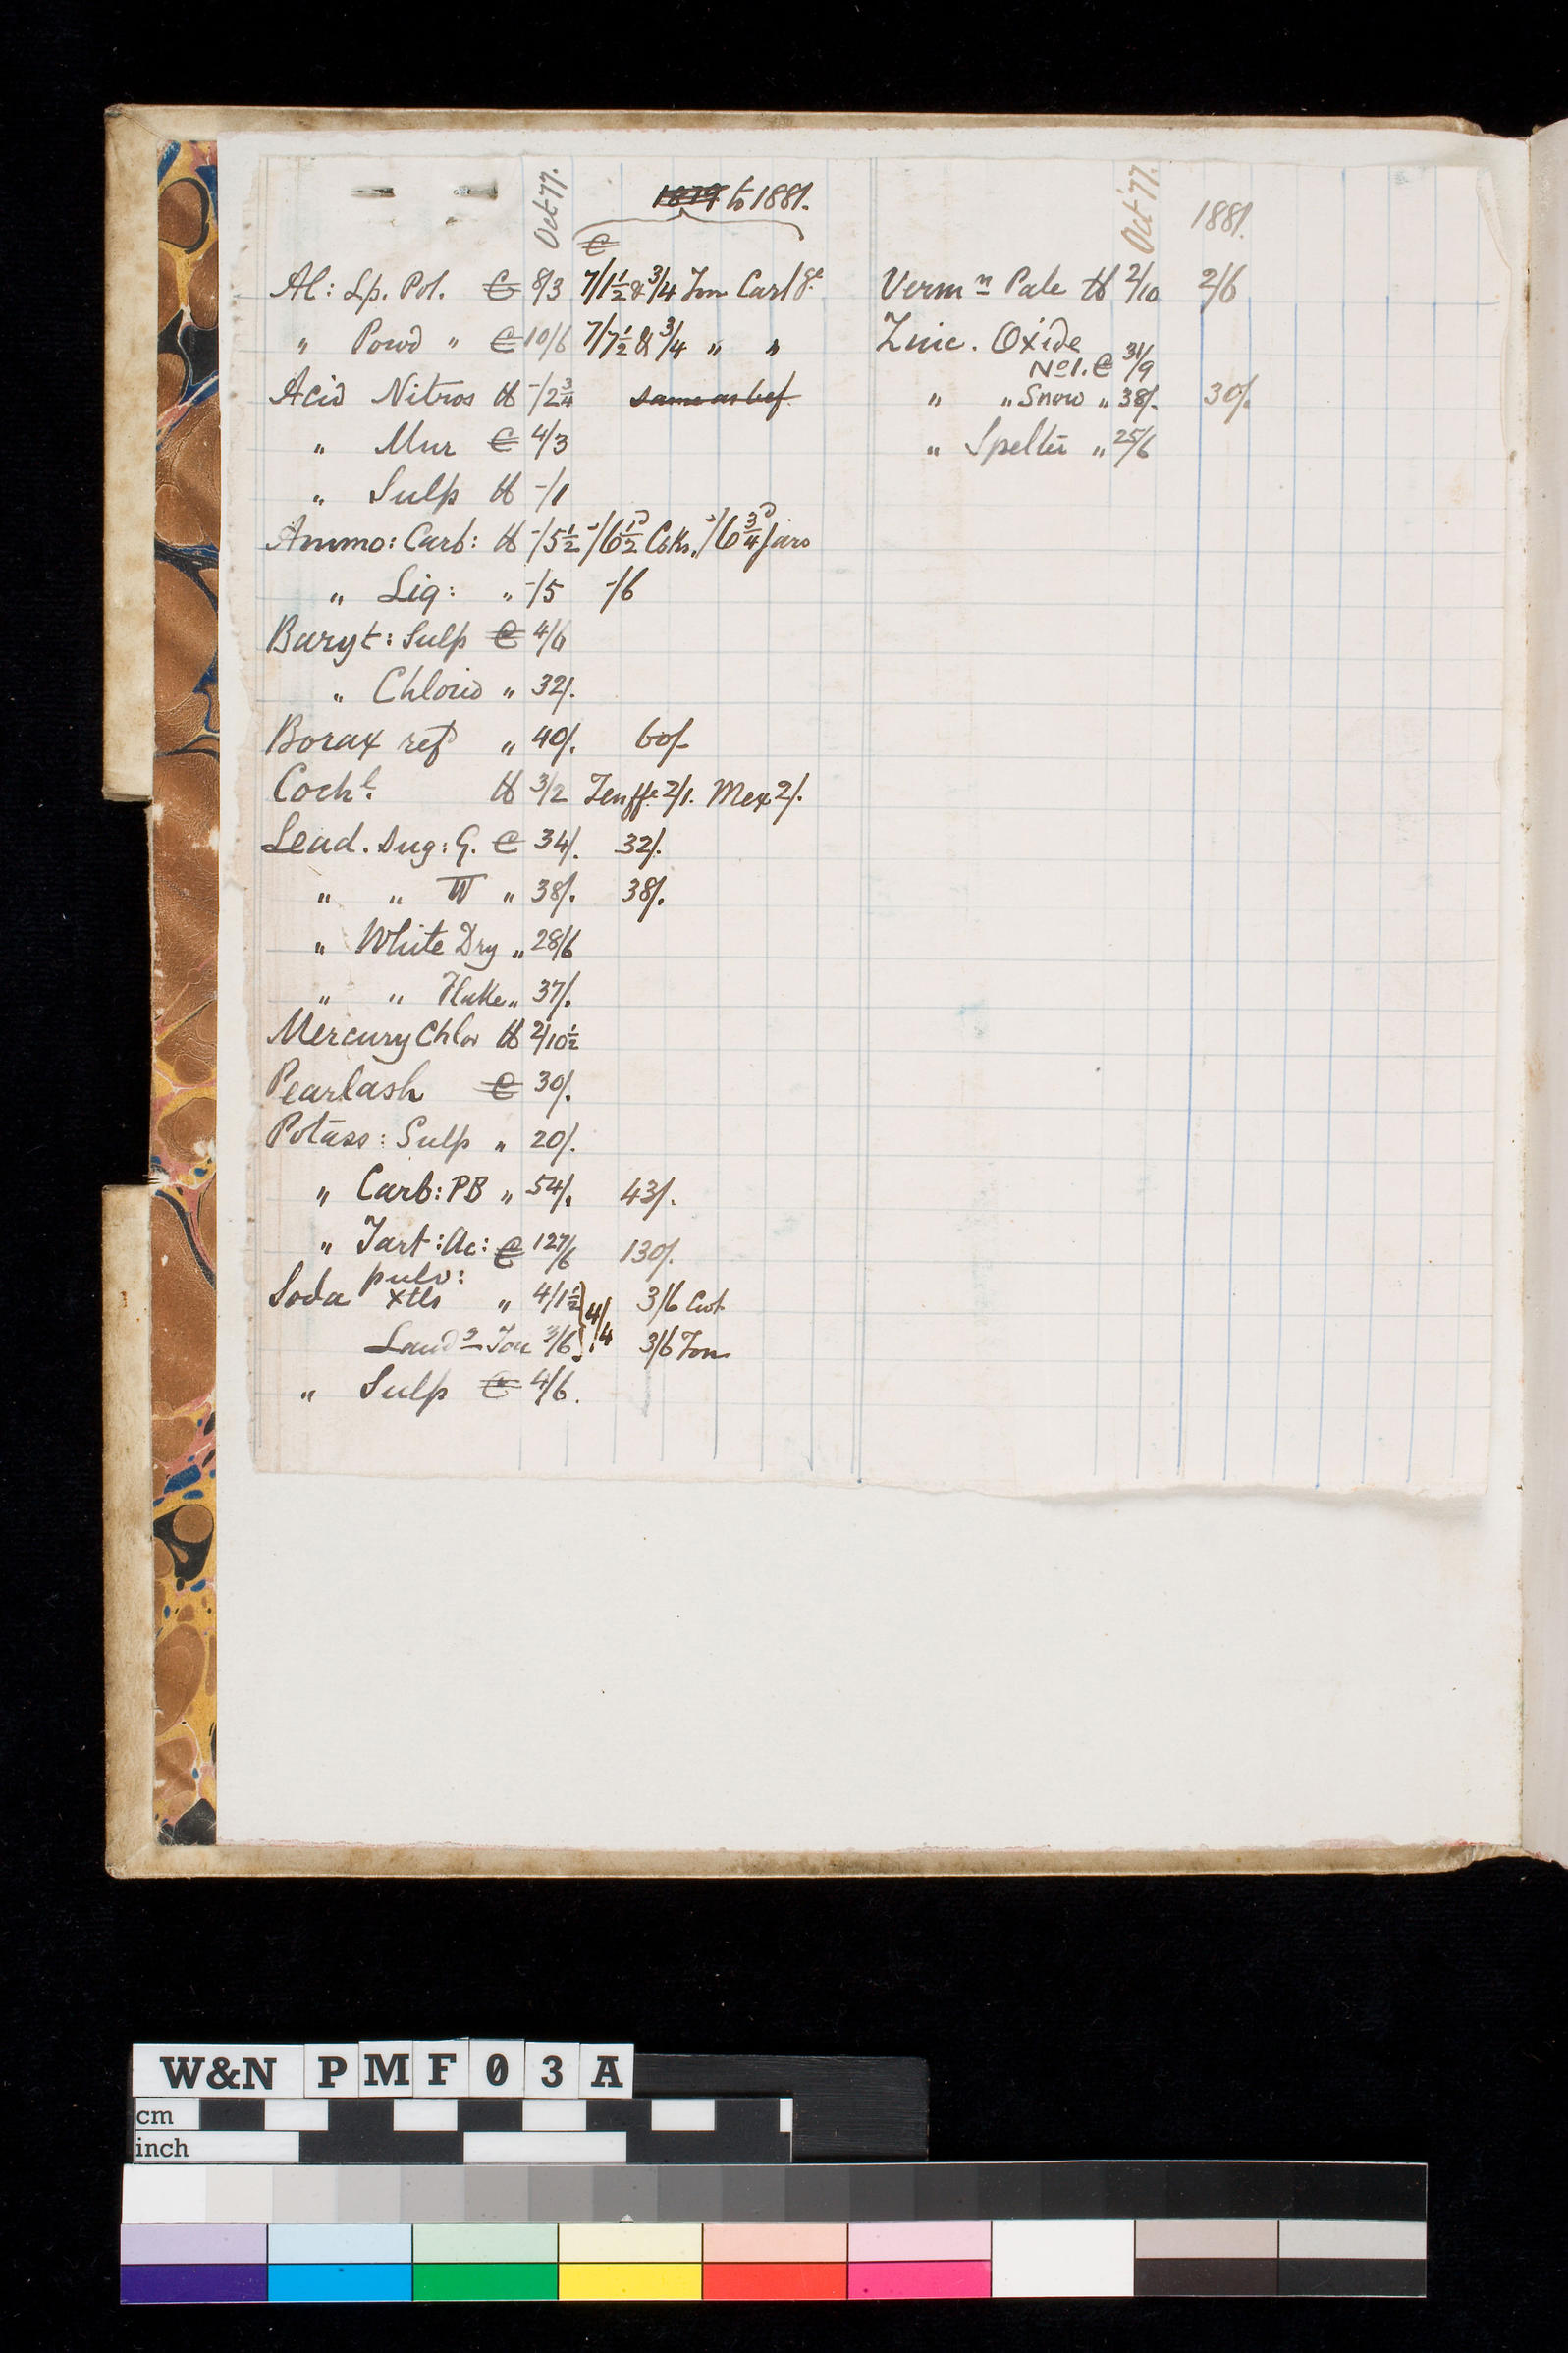 Oct 77. 1879 to 1881.
₠
Al: Lp. Pot. ₠ 8/3 7/1½ & 3/4 Ton Carlge
" Powd " ₠ 10/6 7/7½ & 3/4 " "
Acid Nitros ℔ -/2¾ same as bef
" Mur ₠ 4/3
" Sulp ℔ -/1
Ammo: Carb: ℔ -/5½ -/6½d Csks, -/6¾d Jars
" Liq: " -/5 -/6
Baryt: Sulp ₠ 4/6
" Chlorid " 32/.
Borax refd " 40/. 60/-
Cochl. ℔ 3/2 Tenffe 2/1. Mex 2/.
Lead. Sug: G. ₠ 34/. 32/.
" " W " 38/. 38/.
" White Dry " 28/6
" " Flake " 37/.
Mercury Chlor ℔ 2/10½
Pearlash ₠ 30/.
Potass: Sulp " 20/.
" Carb: PB " 54/. 43/.
" Tart: Ac: ₠ 127/6 130/.
pulv:
Soda xtls " 4/1½ } 4/4 3/6 Cwt
Ton 3/6 3/6 Ton
" Sulp ₠ 4/6.
Oct 77. 1881.
Vermn Pale ℔ 2/10 2/6
Zinc. Oxide
No1. ₠ 31/9
" " Snow " 38/. 30/.
" Spelter " 25/6
W&N PMF03A
cm
inch